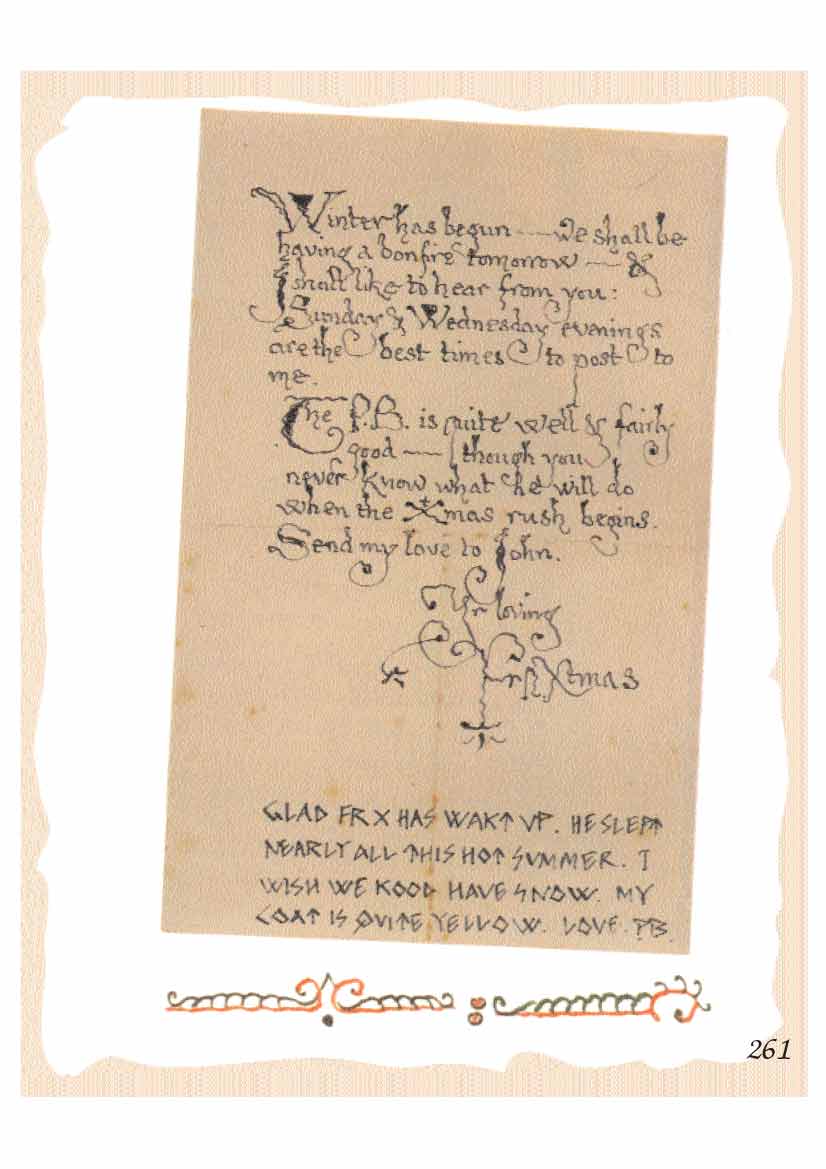 Winter has begun — we shall be
having a bonfire tomorrow — &
I shall like to hear from you:
Sunday & Wednesday evenings
are the best times to post to
me.
The P.B. is quite well & fairly
good — though you
never know what he will do
when the Xmas rush begins.
Send my love to John.
Yr loving
Fr. N. Xtmas
GLAD FR X HAS WAKT UP. HE SLEPT
NEARLY ALL THIS HOT SUMMER. I
WISH WE KOOD HAVE SNOW. MY
COAT IS QUITE YELLOW. LOVE. PB.
261